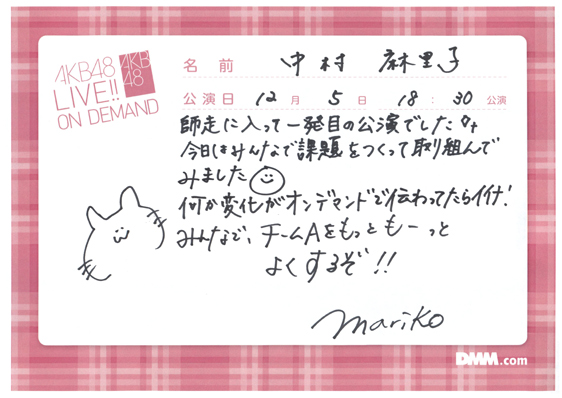 AKB48
LIVE!!
ON DEMAND
AKB
48
名前 中村 麻里子
公演日 12月5日 18:30公演
師走に入って一発目の公演でした
今日はみんなで課題をつくって取り組んで
みました
何か変化がオンデマンドで伝わってたらイイナ!
みんなで、チームAをもっともーっと
よくするぞ!!
mariko
DMM.com